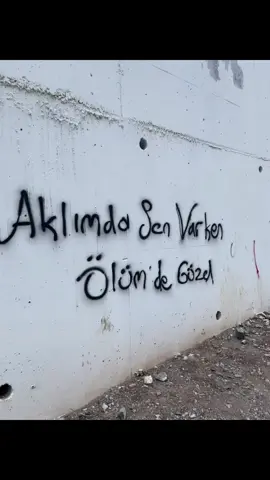 Aklımda Sen Varken
Ölüm'de Güzel